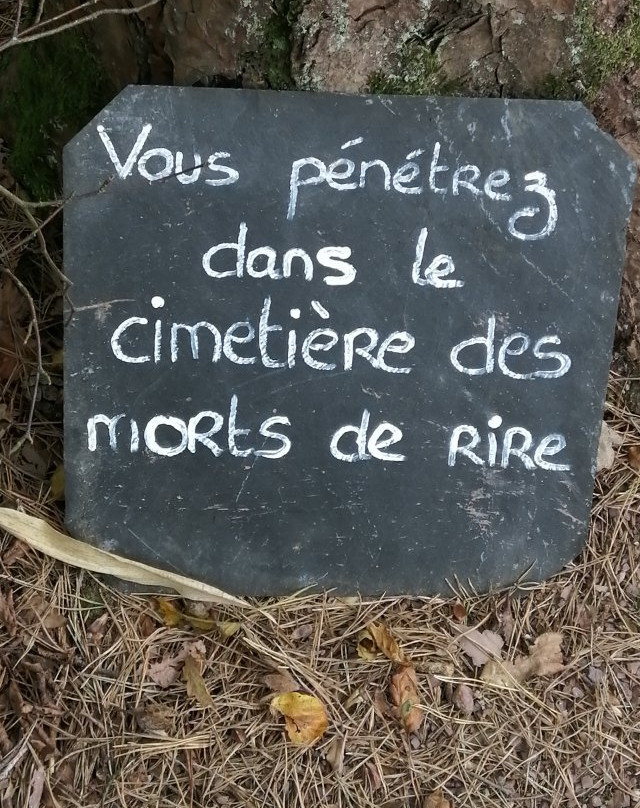 Vous pénétrez
dans le
cimetière des
morts de rire